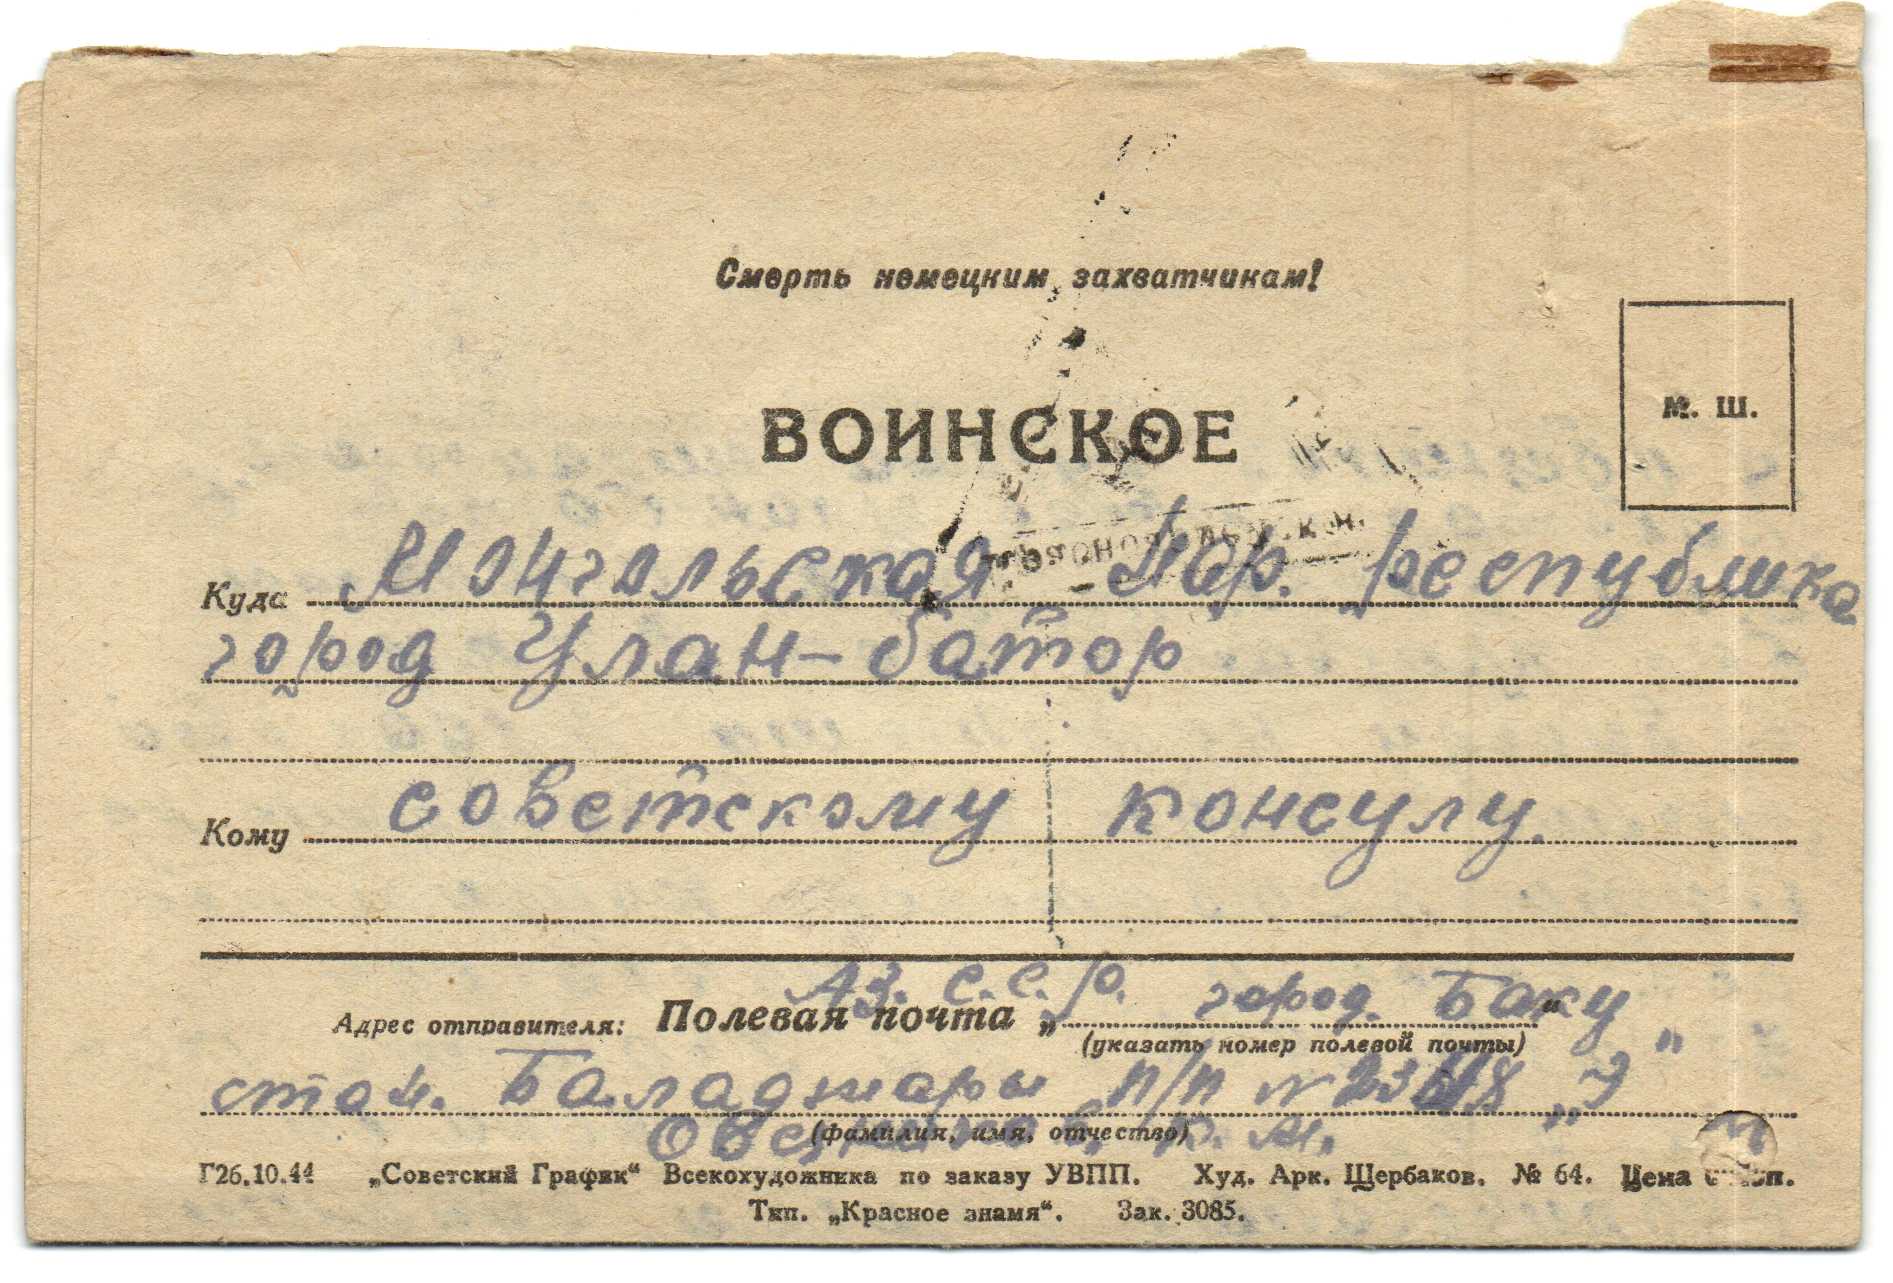 Смерть немецким захватчикам!
ВОИНСКОЕ
М. Ш.
Куда Монгольская Нар. республика
город Улан-батор
Кому советскому консулу.
Аз. С.С.Р. город. Баку
Адрес отправителя: Полевая почта „ “
(указать номер полевой почты)
стан. Баладжары п/п № „Э“
(фамилия, имя, отчество)
Г26.10.44 „Советский График“ Всекохудожника по заказу УВПП. Худ. Арк. Щербаков. № 64. Цена
Тип. „Красное знамя“. Зак. 3085.